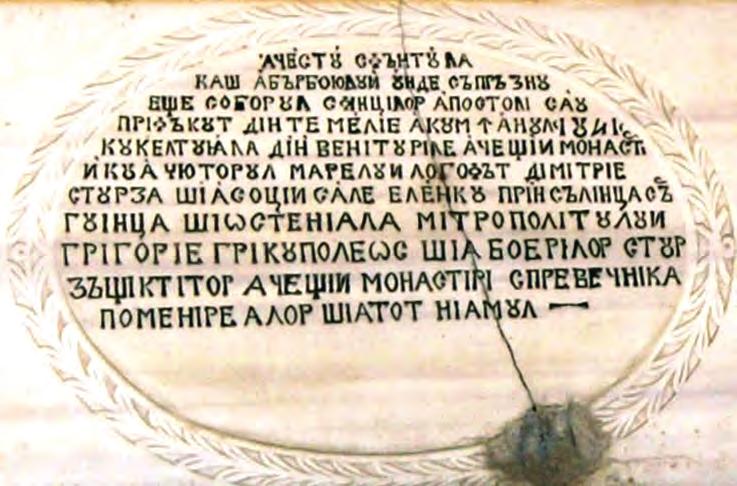 АЧЕСТꙋ СФЪНТꙋЛА
КАШ АБЪРБОЮЛꙋЙ ꙋНДЕ СЪПРЪЗНꙋ
ЕЩЕ СОБОРꙋЛ СФИНЦІЛОР АПОСТОЛІ САꙋ
ПРІФЪКꙋТ ДІНТЕМЕЛІЕ АКꙋМ ꙟАНꙋЛ
КꙋКЕЛТꙋꙗЛА ДІН ВЕНІТꙋРІЛЕ АЧЕЩІЙ МОНАСТІ
ЙКꙋАЧЮТОРꙋЛ МАРЕЛꙋЙ ЛОГОФЪТ ДІМІТРІЕ
СТꙋРЗА ШІАСОЦІЙ САЛЕ ЕЛЕНКꙋ ПРІН СЪЛІНЦА СЪ
ГꙋИНЦА ШІѠСТЕНІАЛА МІТРОПОЛІТꙋЛꙋЙ
ГРІГОРІЕ ГРІКꙋПОЛЕѠС ШІА БОЕРІЛОР СТꙋР
ЗЪЩІ КТІТОР АЧЕЩІЙ МОНАСТІРІ СПРЕ ВЕЧНІКА
ПОМЕНІРЕ АЛОР ШІАТОТ НІАМꙋЛ